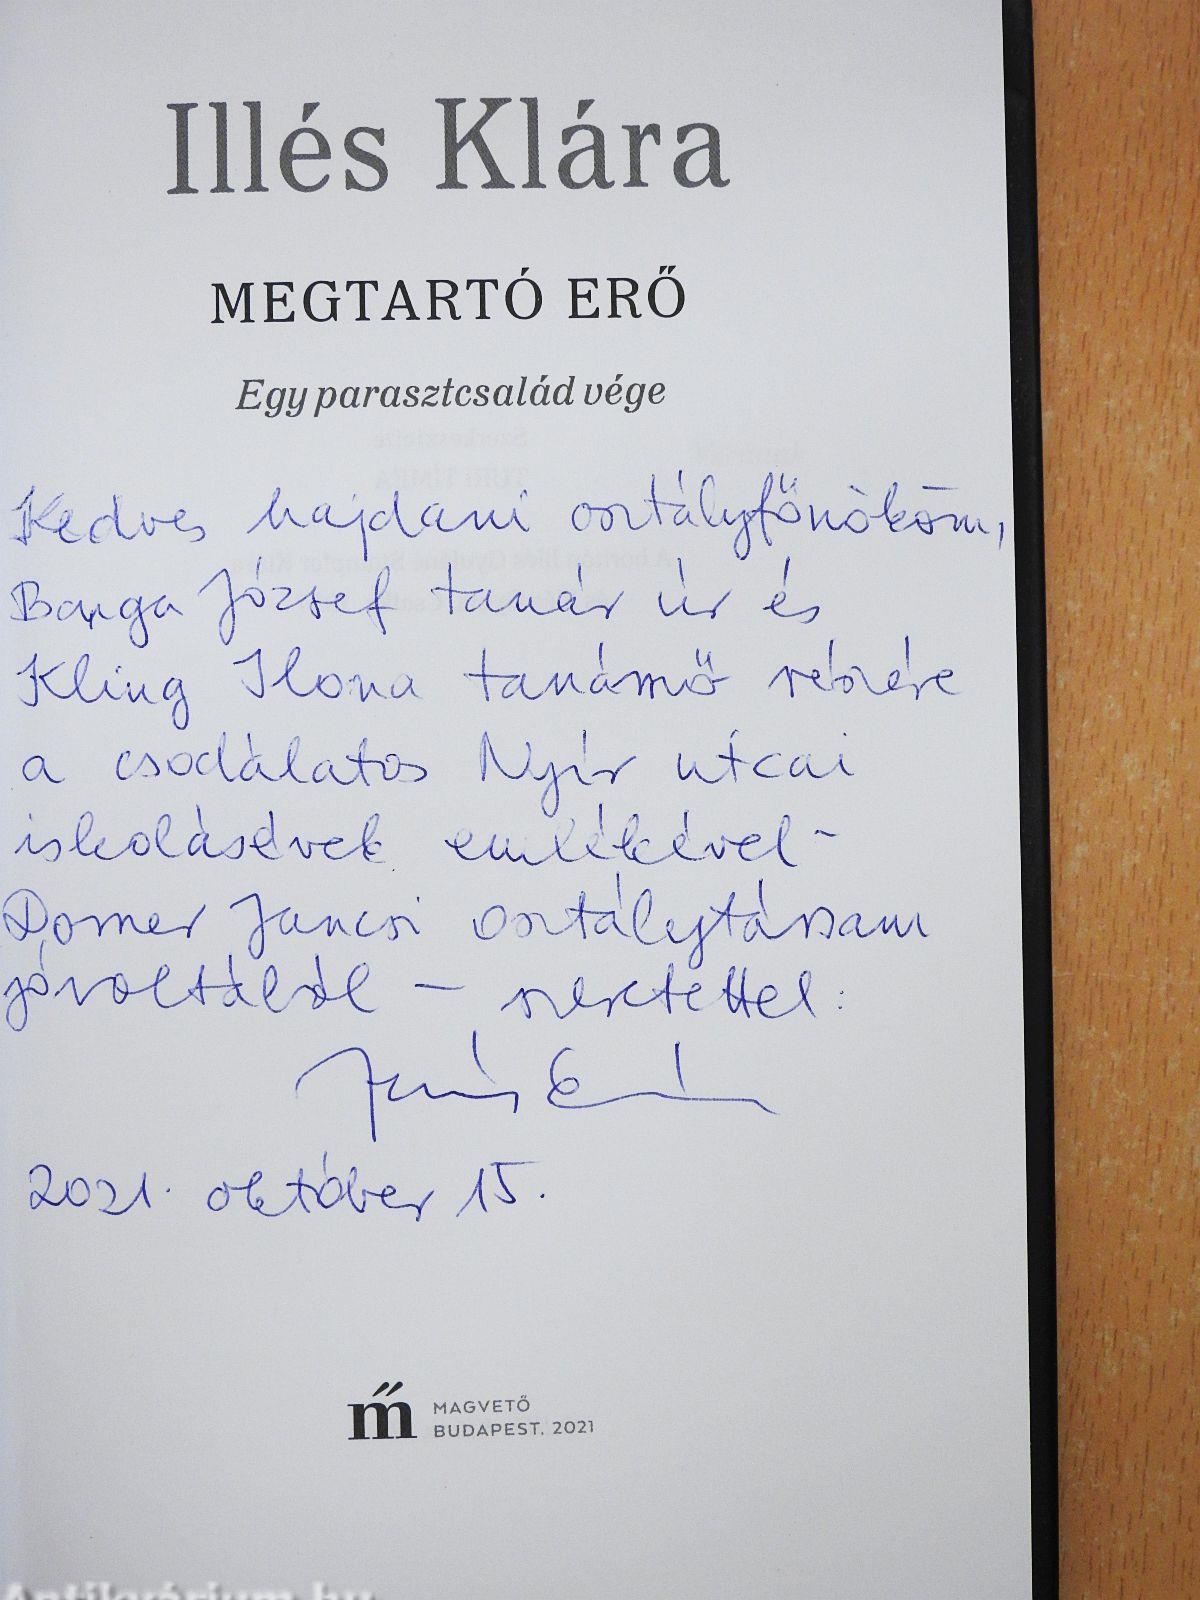 Illés Klára
MEGTARTÓ ERŐ
Egy parasztcsalád vége
Kedves hajdani osztályfőnököm,
Banga József tanár úr és
Kling Ilona tanárnő részére
a csodálatos Nyír utcai
iskolásévek emlékével -
Dorner Jancsi osztálytársam
jóvoltából - szeretettel:
2021. október 15.
MAGVETŐ
BUDAPEST, 2021
Antikvárium.hu